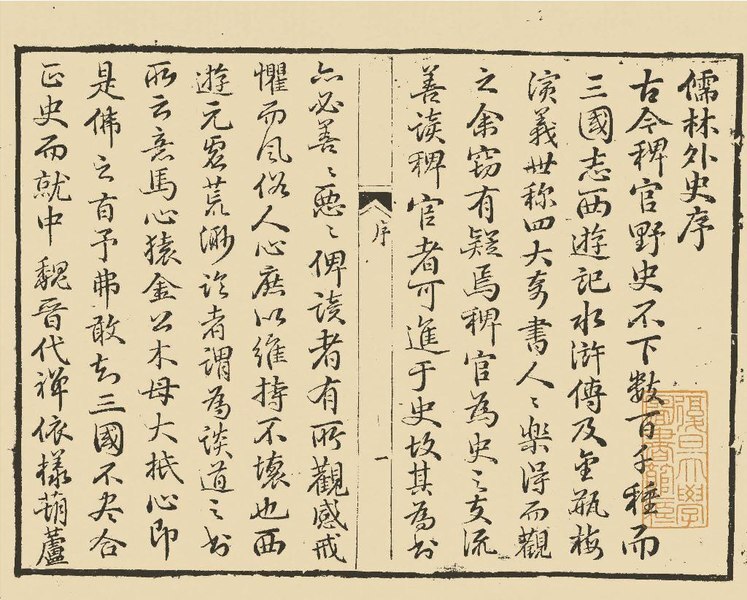 儒林外史序
古今稗官野史不下数百千種而
三國志西遊記水滸傳及金瓶梅
演義世称四大奇書人〻樂得而觀
之余竊有疑焉稗官為史之支流
善读稗官者可進于史故其為书
亦必善〻惡〻俾读者有所觀感戒
懼而風俗人心庶以維持不壞也西
遊元虚荒渺论者谓為谈道之书
所云意馬心猿金公木母大抵心即
是佛之旨予弗敢知三國不尽合
正史而就中魏晉代禅依様葫蘆
序
一
復旦大學
圖書館